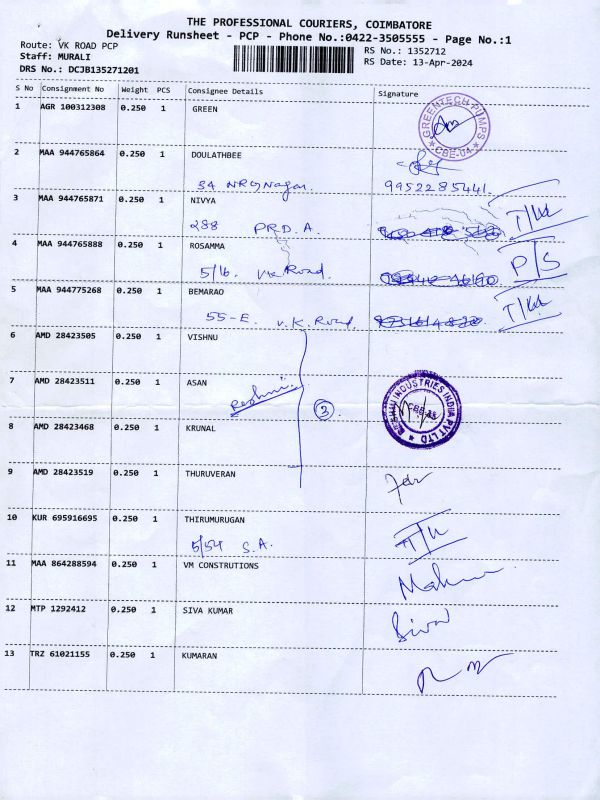 THE PROFESSIONAL COURIERS, COIMBATORE
Delivery Runsheet - PCP - Phone No.:0422-3505555 - Page No.:1
Route: VK ROAD PCP
RS No.: 1352712
Staff: MURALI
RS Date: 13-Apr-2024
DRS No.: DCJB135271201
S No Consignment No Weight PCS Consignee Details Signature
1 AGR 100312308 0.250 1 GREEN
GREENTECH PUMPS
* CBE-04 *
2 MAA 944765864 0.250 1 DOULATHBEE
34 NRG Nagar. 9952285441
3 MAA 944765871 0.250 1 NIVYA
288 P.R.D.A.
4 MAA 944765888 0.250 1 ROSAMMA
P/S
5/16. V.K Road.
5 MAA 944775268 0.250 1 BEMARAO
55-E. V.K. Road.
6 AMD 28423505 0.250 1 VISHNU
7 AMD 28423511 0.250 1 ASAN
3
INDUSTRIES INDIA PVT LTD
8 AMD 28423468 0.250 1 KRUNAL
9 AMD 28423519 0.250 1 THURUVERAN
10 KUR 695916695 0.250 1 THIRUMURUGAN
5/54 S.A.
11 MAA 864288594 0.250 1 VM CONSTRUTIONS
12 MTP 1292412 0.250 1 SIVA KUMAR
Siva
13 TRZ 61021155 0.250 1 KUMARAN